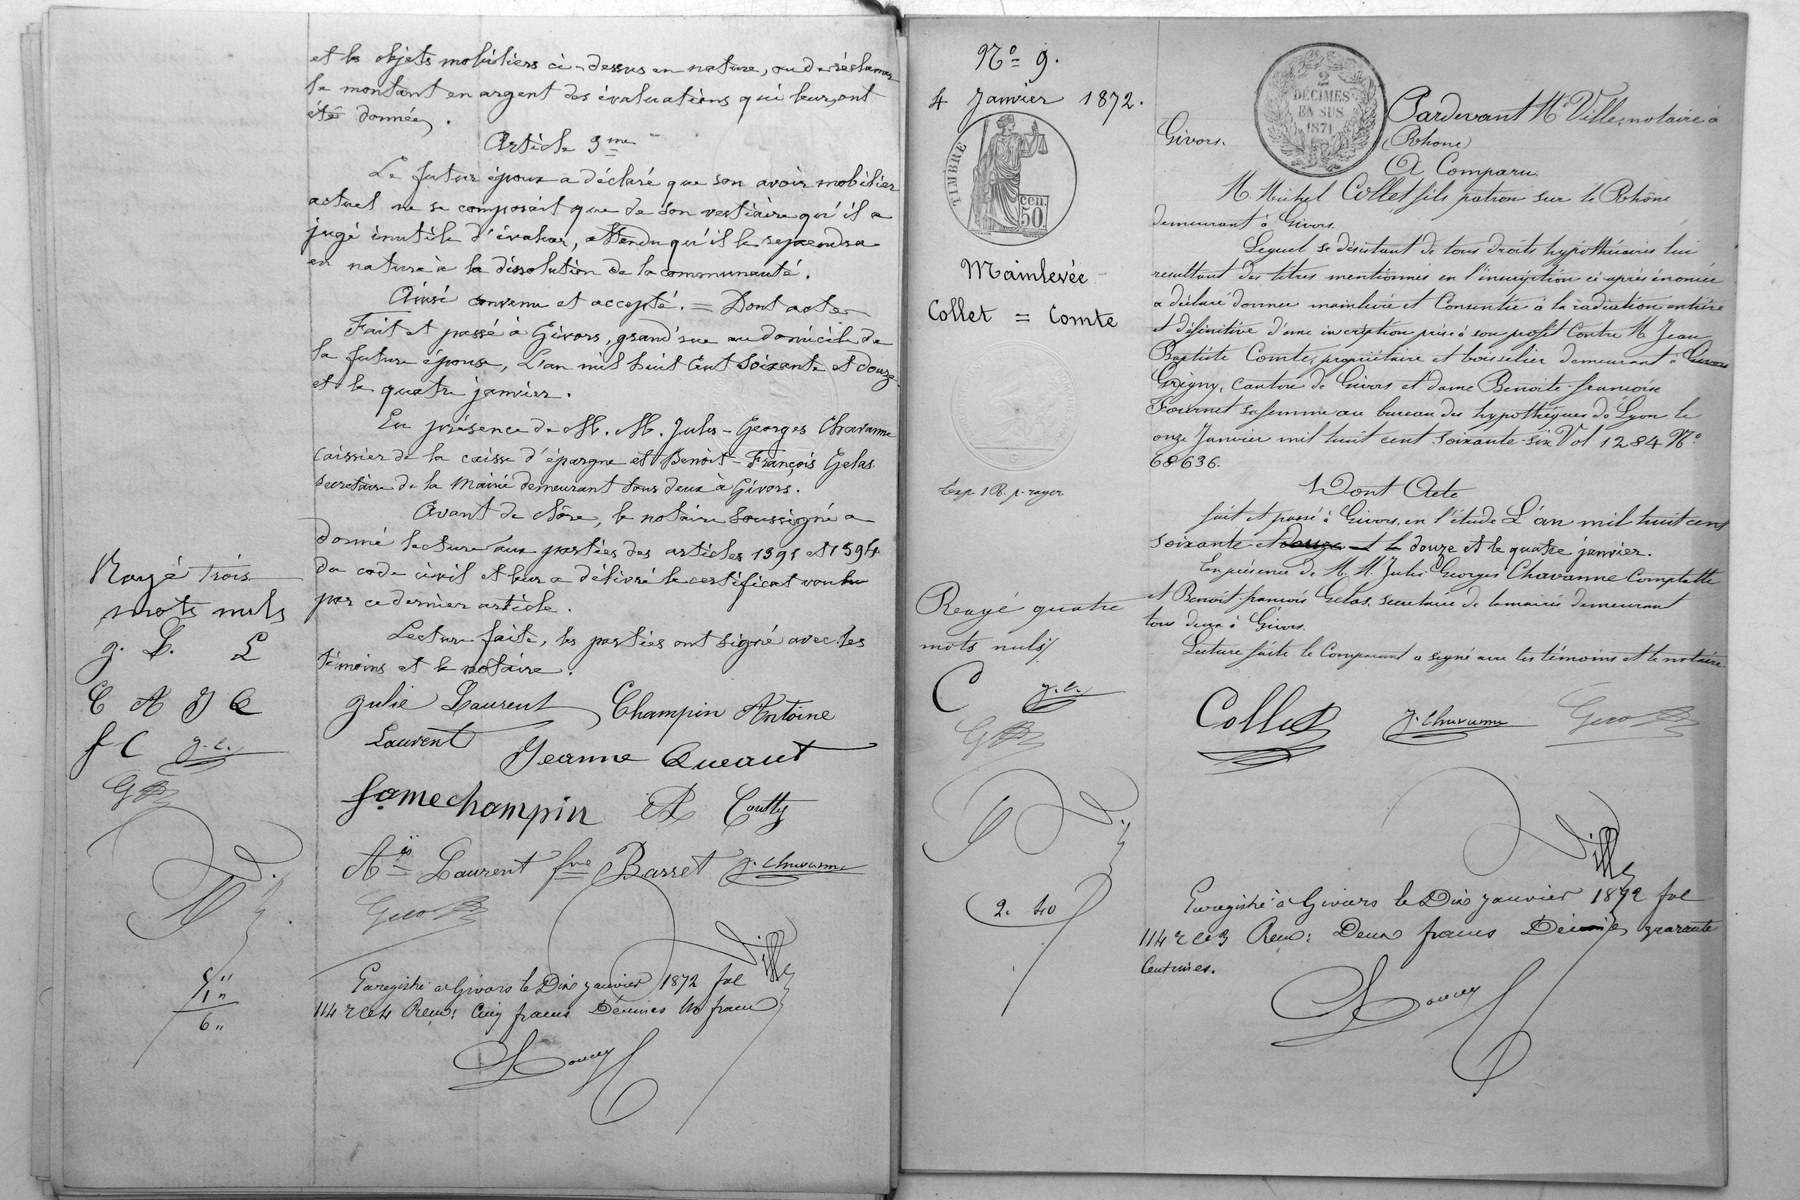 et les objets mobiliers ci-dessus en nature, ou de réclamer
le montant en argent des évaluations qui leur ont
été données.
Article 9me
Le futur époux a déclaré que son avoir mobilier
actuel ne se composait que de son vestiaire qu'il a
jugé inutile d'évaluer, attendu qu'il le reprendra
en nature à la dissolution de la communauté.
Ainsi convenu et accepté. = Dont acte
Fait et passé à Givors, grand'rue au domicile de
la future épouse, L'an mil huit cent soixante et douze
et le quatre janvier.
En présence de M. M. Jules-Georges Chavanne
caissier de la caisse d'épargne et Benoit-François Gelas
secrétaire de la Mairie demeurant tous deux à Givors.
Avant de clore, le notaire soussigné a
donné lecture aux parties des articles 1391 et 1394
du code civil et leur a délivré le certificat voulu
par ce dernier article.
Lecture faite, les parties ont signé avec les
témoins et le notaire.
Rayé trois
mots nuls
g. L. L
C A J Q
f C g.c.
julie Laurent Champin Antoine
Laurent Jeanne Queaut
fame champin
Ais Laurent fne Basset J. Chavanne
Ville
Enregistré à Givors le Dix janvier 1872 fol
114 r c 4 Reçu: Cinq francs Décimes un franc
5 "
1 "
6 "
No 9.
4 Janvier 1872.
TIMBRE
50 cen.
Mainlevée
Collet = Comte
Exp 1 R. p. rayer
Rayé quatre
mots nuls
C g.c.
2. 40
2
DÉCIMES
EN SUS
1871
Pardevant Me Ville, notaire à
Givors. (Rhône)
A Comparu
M. Michel Collet fils patron sur le Rhône
demeurant à Givors.
Lequel se désistant de tous droits hypothécaires lui
résultant des titres mentionnés en l'inscription ci-après énoncée
a déclaré donner mainlevée et Consentir à la radiation entière
et définitive d'une inscription prise à son profit Contre M. Jean
Baptiste Comte, propriétaire et boisselier demeurant à Givors
Grigny, canton de Givors et dame Benoite-françoise
Fournet sa femme au bureau des hypothèques de Lyon le
onze Janvier mil huit cent soixante-six Vol 1284 No
68636.
Dont Acte
fait et passé à Givors, en l'étude L'an mil huit cent
soixante et douze et le douze et le quatre janvier.
En présence de M. M. Jules Georges Chavanne Comptable
et Benoit-françois Gelas, secrétaire de la mairie demeurant
tous deux à Givors.
Lecture faite le Comparant a signé avec les témoins et le notaire
Collet J. Chavanne
Ville
Enregistré à Givors le Dix janvier 1872 fol
114 r c 3 Reçu: Deux francs Décimes quarante
Centimes.